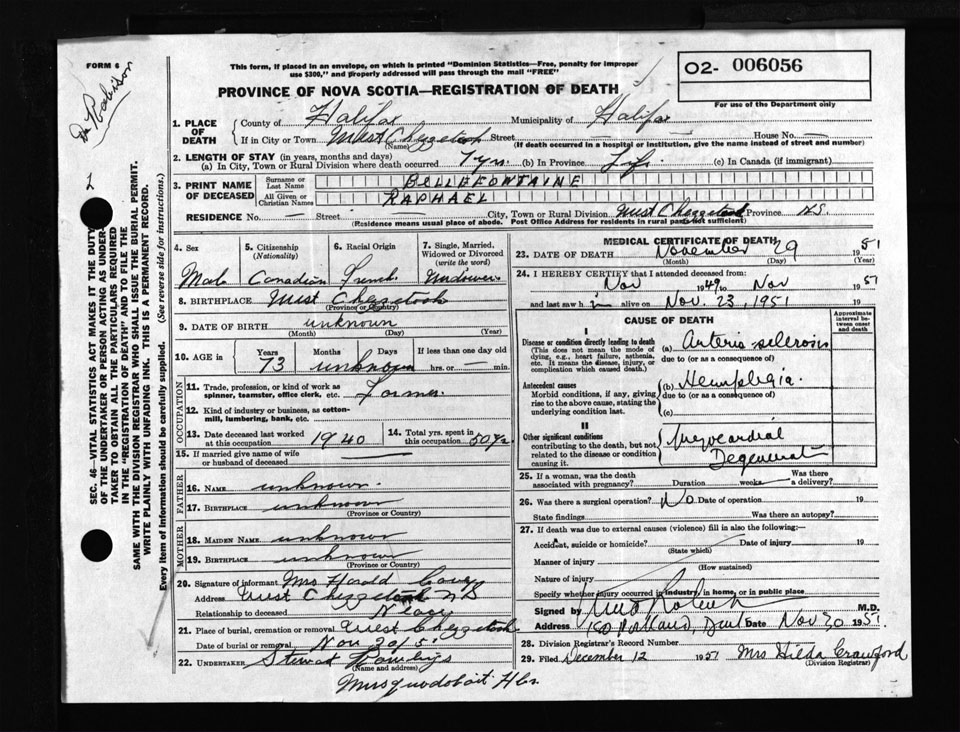 FORM 6
This form, if placed in an envelope, on which is printed "Dominion Statistics—Free, penalty for improper
use $300," and properly addressed will pass through the mail "FREE"
PROVINCE OF NOVA SCOTIA—REGISTRATION OF DEATH
02- 006056
For use of the Department only
1. PLACE OF DEATH
County of Halifax Municipality of Halifax
If in City or Town West Chezzetcook Street House No. —
(Name) (If death occurred in a hospital or institution, give the name instead of street and number)
2. LENGTH OF STAY (in years, months and days)
(a) In City, Town or Rural Division where death occurred 7 yrs. (b) In Province Life (c) In Canada (if immigrant)
3. PRINT NAME OF DECEASED
Surname or Last Name BELLEFONTAINE
All Given or Christian Names RAPHAEL
RESIDENCE No. — Street — City, Town or Rural Division West Chezzetcook Province N.S.
(Residence means usual place of abode. Post Office Address for residents in rural parts not sufficient)
4. Sex Male
5. Citizenship (Nationality) Canadian
6. Racial Origin French
7. Single, Married, Widowed or Divorced (write the word) Widower
8. BIRTHPLACE West Chezzetcook
(Province or Country)
9. DATE OF BIRTH unknown
(Month) (Day) (Year)
10. AGE in Years 73 Months unknown Days If less than one day old hrs. or — min.
OCCUPATION
11. Trade, profession, or kind of work as
spinner, teamster, office clerk, etc. Farmer
12. Kind of industry or business, as cotton-
mill, lumbering, bank, etc.
13. Date deceased last worked at this occupation 1940
14. Total yrs. spent in this occupation 50 yrs
15. If married give name of wife
or husband of deceased —
FATHER
16. NAME unknown
17. BIRTHPLACE unknown
(Province or Country)
MOTHER
18. MAIDEN NAME unknown
19. BIRTHPLACE unknown
(Province or Country)
20. Signature of informant Mrs Harold
Address West Chezzetcook NS
Relationship to deceased
21. Place of burial, cremation or removal West Chezzetcook
Date of burial or removal Nov 30/51
22. UNDERTAKER Stewart
(Name and address)
Musquodoboit Hbr
MEDICAL CERTIFICATE OF DEATH
23. DATE OF DEATH November 29 1951
(Month) (Day) (Year)
24. I HEREBY CERTIFY that I attended deceased from:
Nov 1949, to Nov 1951
and last saw h i alive on Nov. 23, 1951
CAUSE OF DEATH
Approximate interval between onset and death
I
Disease or condition directly leading to death
(This does not mean the mode of dying, e.g., heart failure, asthenia, etc. It means the disease, injury, or complication which caused death.)
(a) Arterio sclerosis
due to (or as a consequence of)
Antecedent causes
Morbid conditions, if any, giving rise to the above cause, stating the underlying condition last.
(b) Hemiplegia.
due to (or as a consequence of)
(c)
II
Other significant conditions
contributing to the death, but not related to the disease or condition causing it.
Myocardial
Degenerat
25. If a woman, was the death associated with pregnancy? Duration weeks Was there a delivery?
26. Was there a surgical operation? No Date of operation 19
State findings Was there an autopsy?
27. If death was due to external causes (violence) fill in also the following:—
Accident, suicide or homicide? Date of injury 19
(State which)
Manner of injury
(How sustained)
Nature of injury
Specify whether injury occurred in industry, in home, or in public place
Signed by M.D.
Address Date Nov 30 1951.
28. Division Registrar's Record Number
29. Filed December 12 1951 Mrs Hilda Crawford
(Division Registrar)
SEC. 46—VITAL STATISTICS ACT MAKES IT THE DUTY
OF THE UNDERTAKER OR PERSON ACTING AS UNDER-
TAKER TO OBTAIN ALL THE PARTICULARS REQUIRED
IN THE "REGISTRATION OF DEATH" AND TO FILE THE
SAME WITH THE DIVISION REGISTRAR WHO SHALL ISSUE THE BURIAL PERMIT.
WRITE PLAINLY WITH UNFADING INK. THIS IS A PERMANENT RECORD.
Every item of information should be carefully supplied. (See reverse side for instructions.)